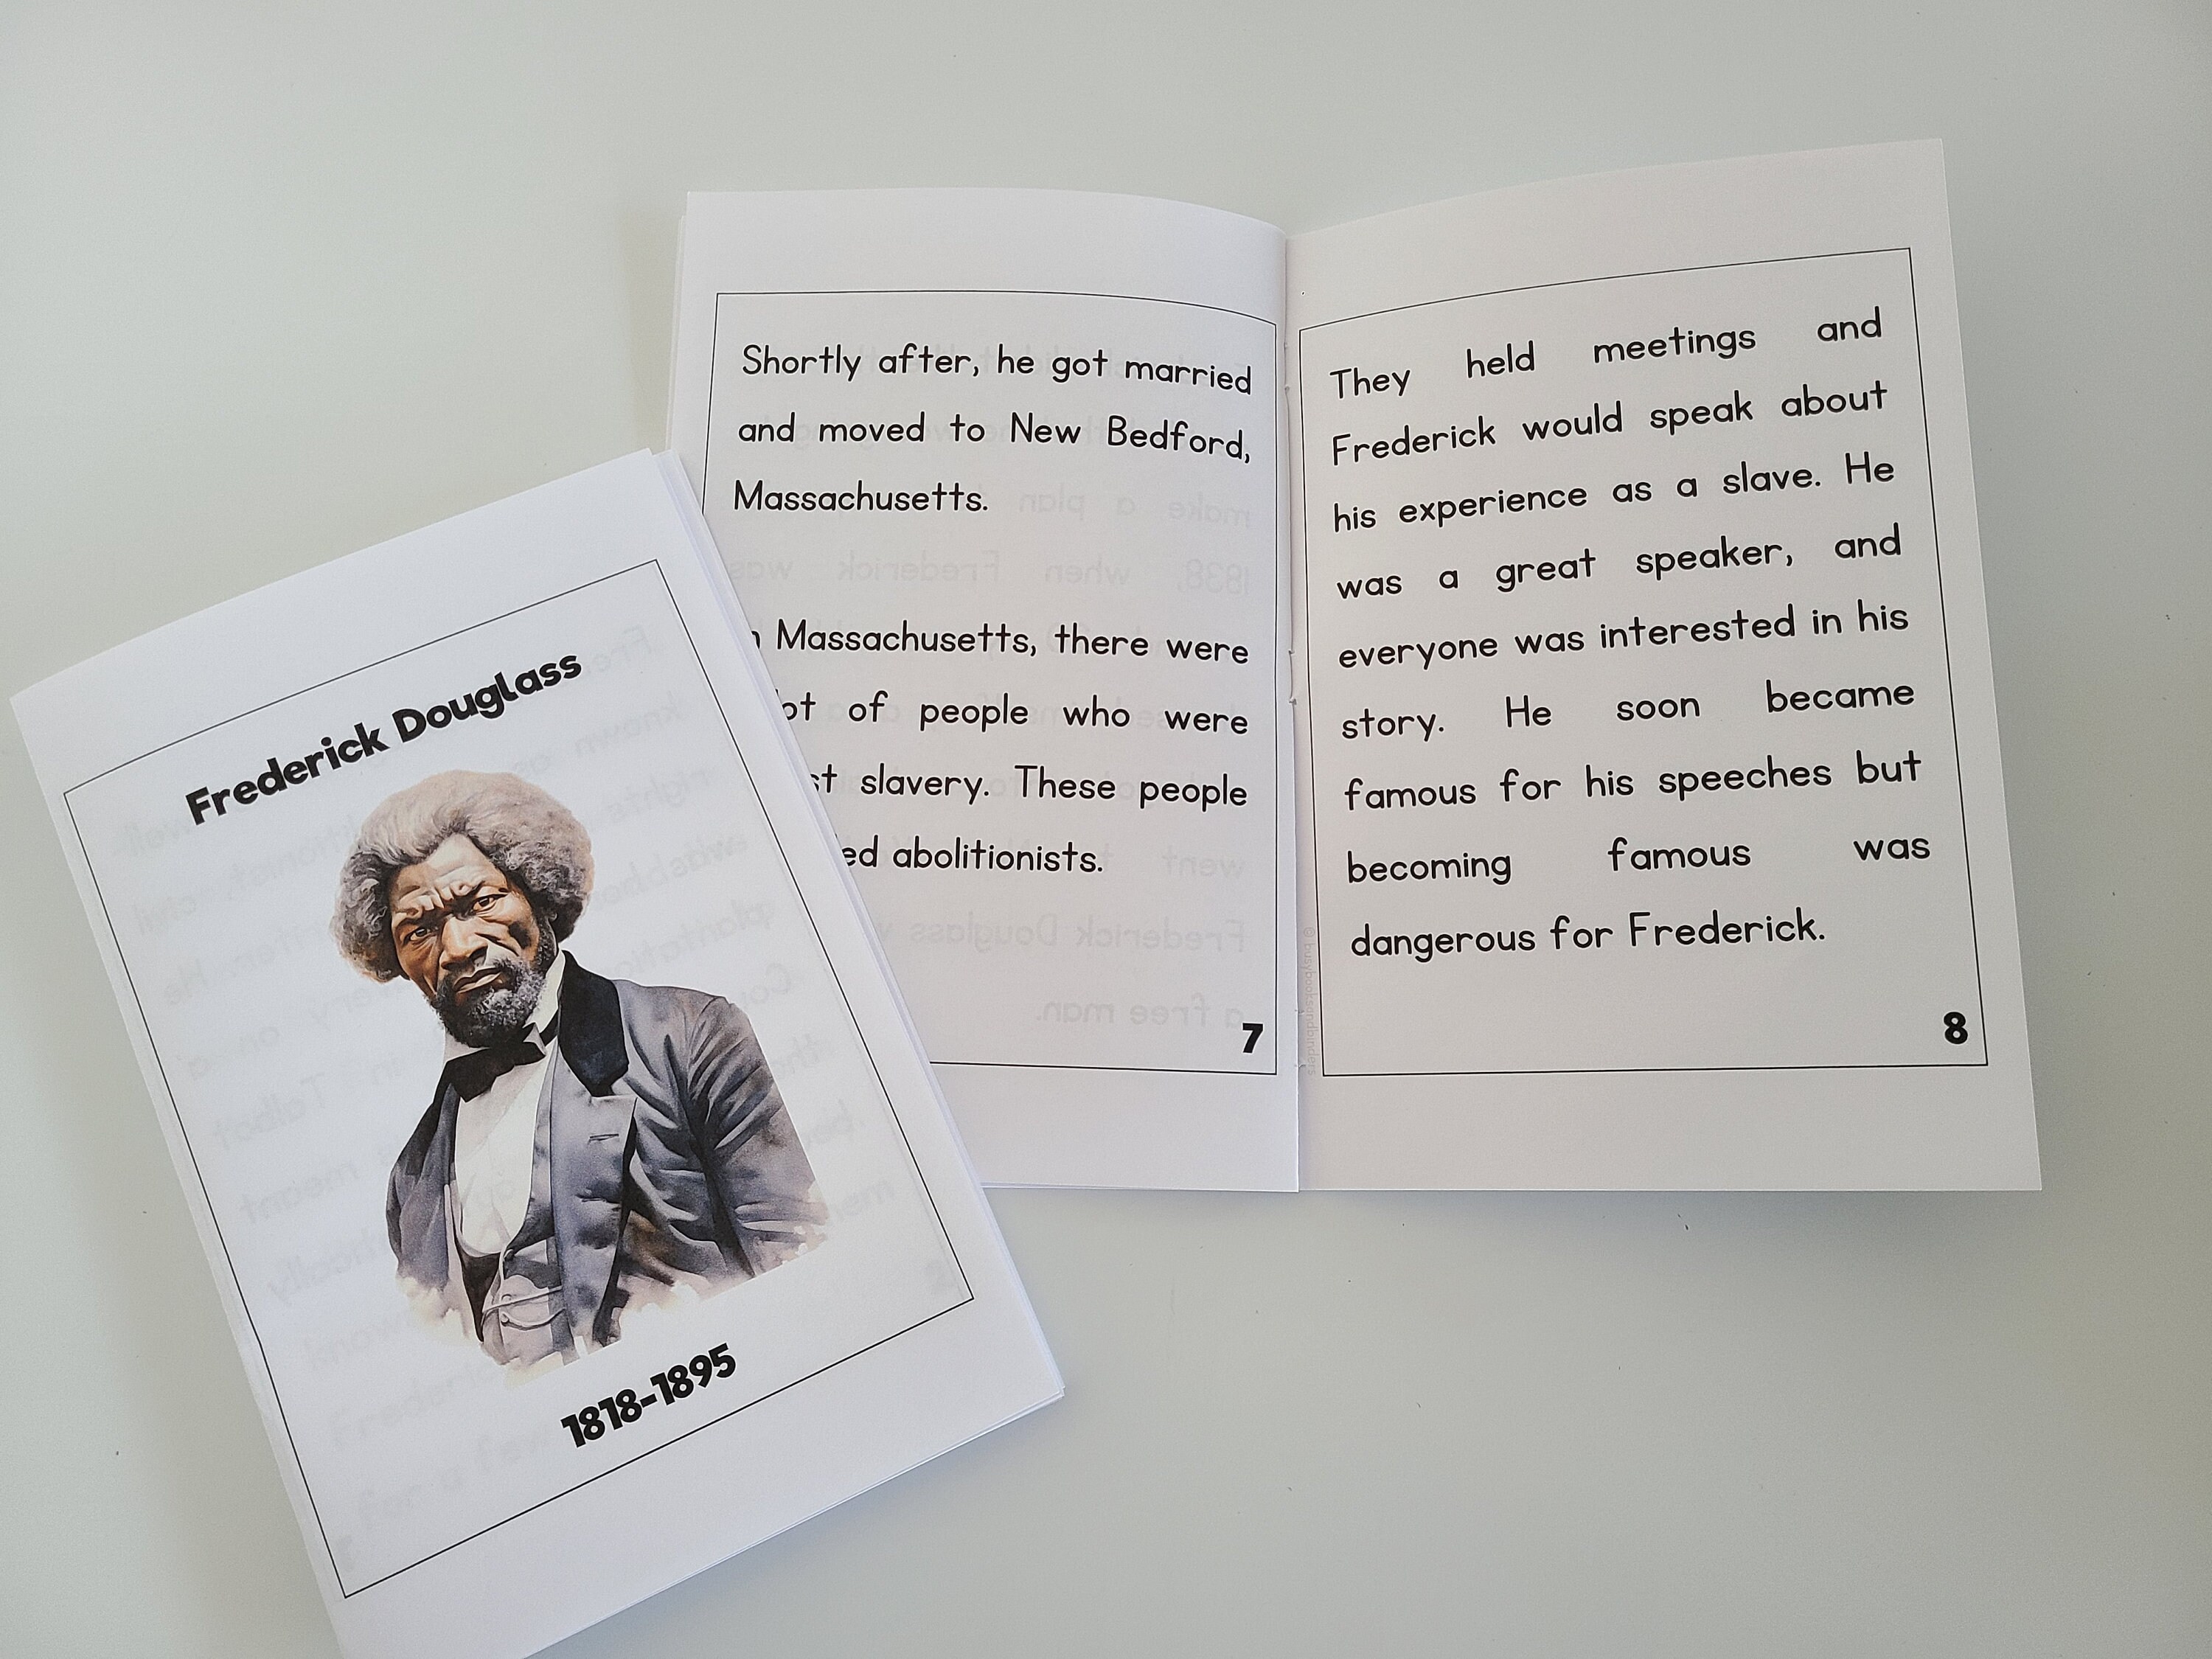 Frederick Douglass
1818-1895
Shortly after, he got married
and moved to New Bedford,
Massachusetts.
Massachusetts, there were
of people who were
slavery. These people
abolitionists.
7
They held meetings and
Frederick would speak about
his experience as a slave. He
was a great speaker, and
everyone was interested in his
story. He soon became
famous for his speeches but
becoming famous was
dangerous for Frederick.
8
© busybooksandbinders